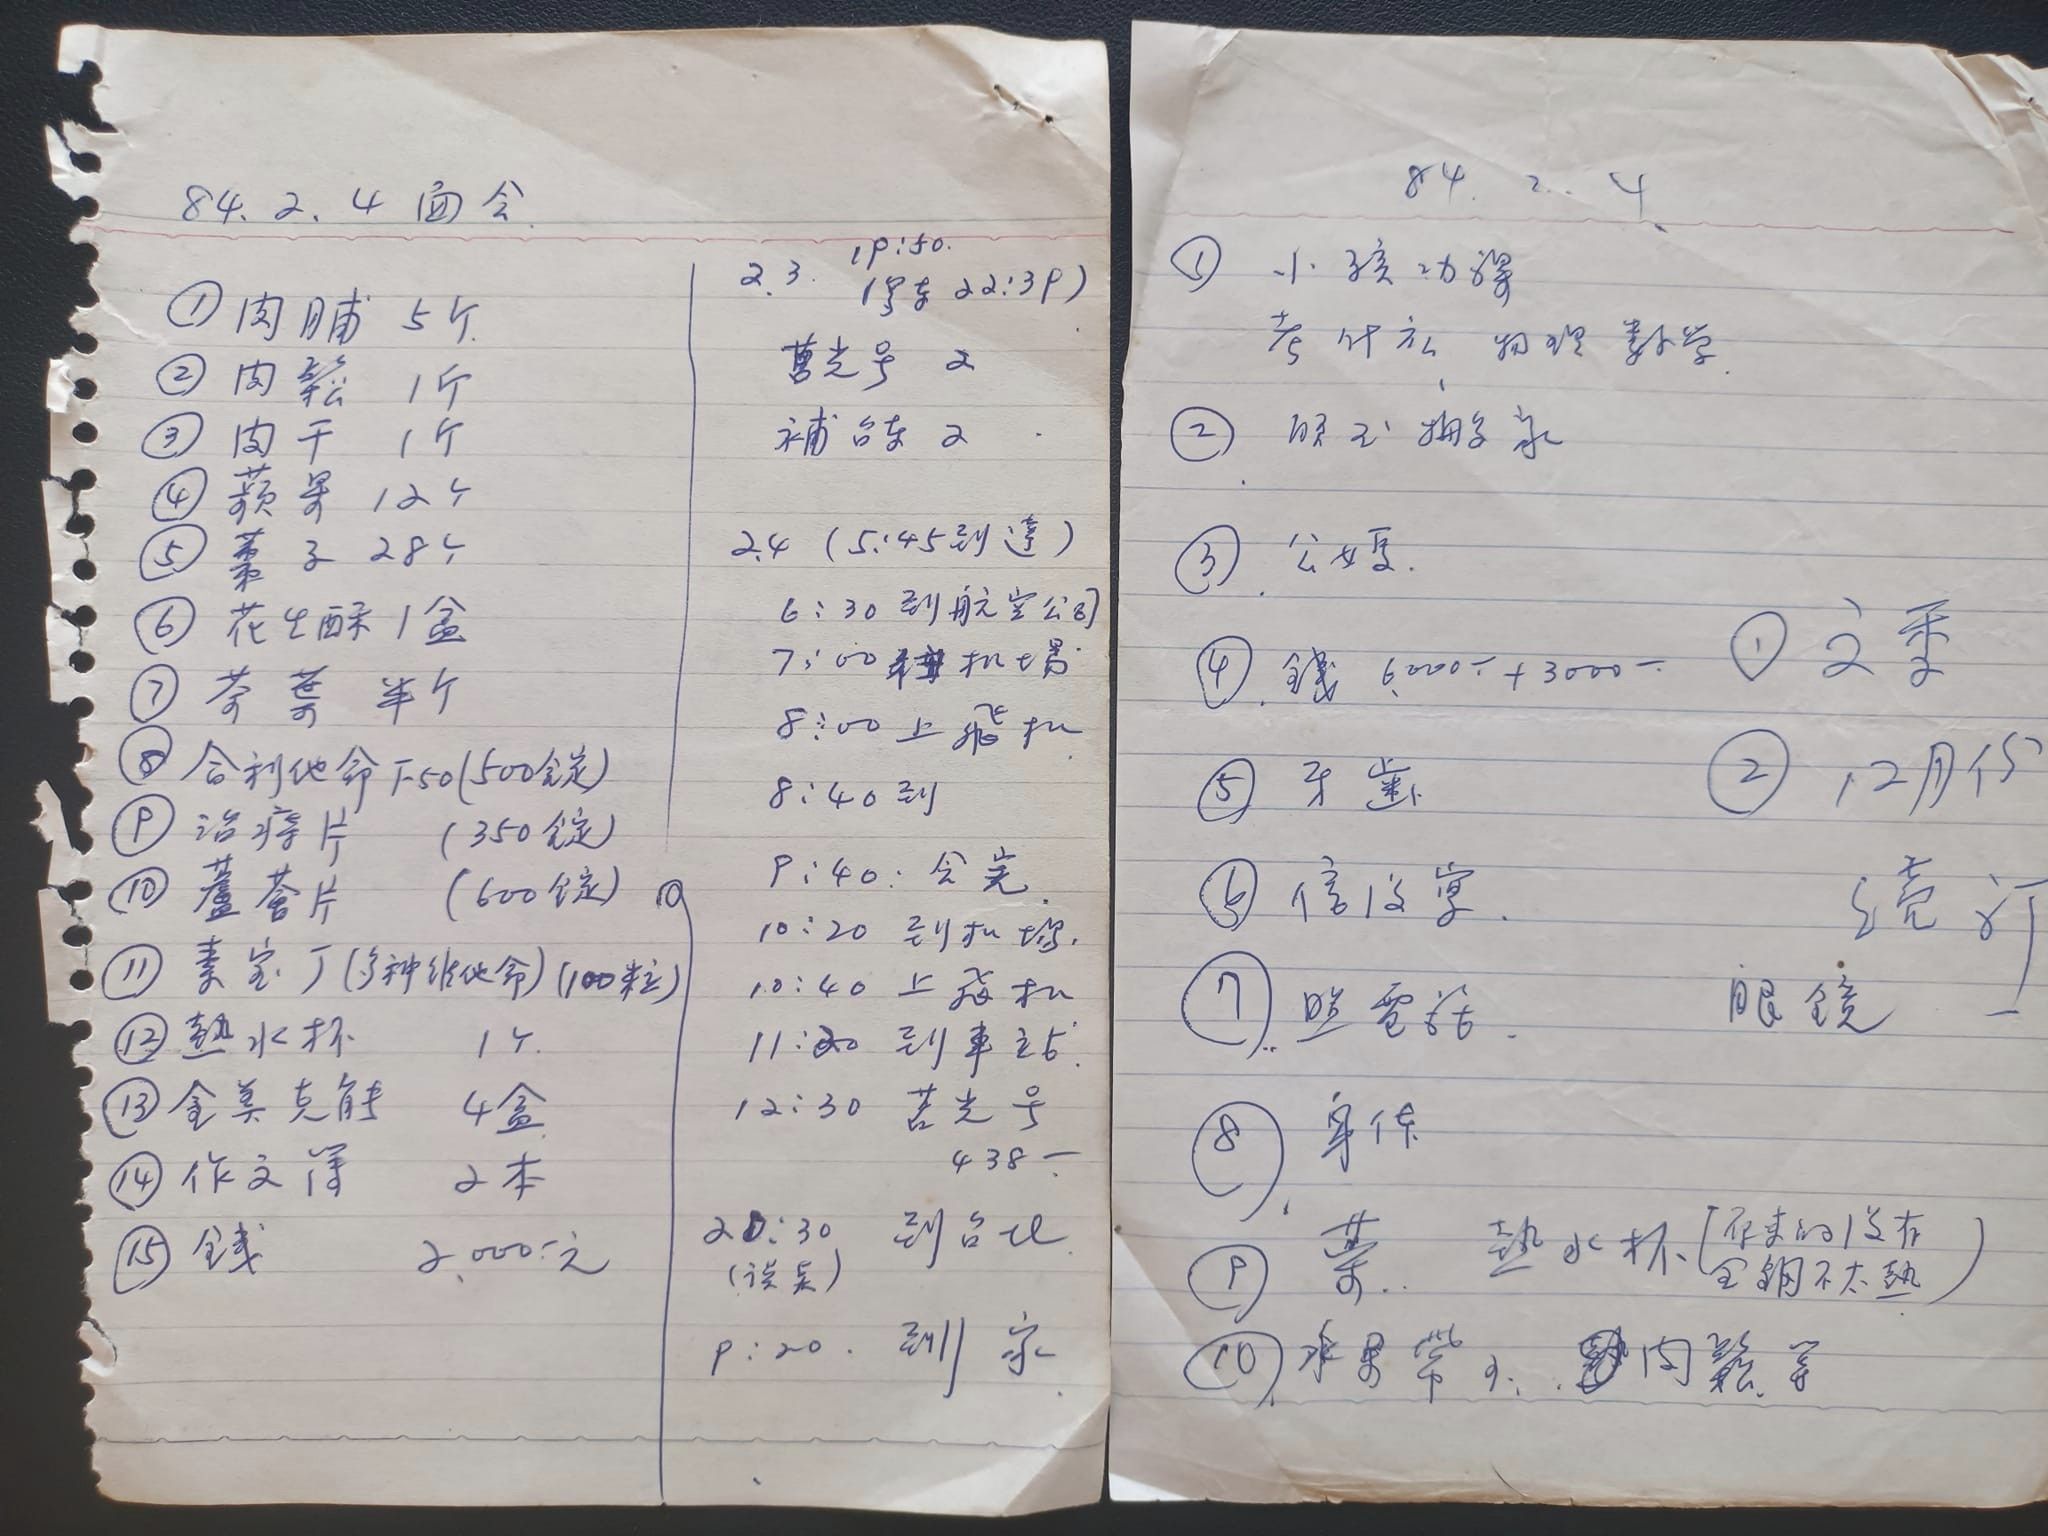 84.2.4 面会
① 肉脯 5斤
② 肉鬆 1斤
③ 肉干 1斤
④ 蘋果 12个
⑤ 棗子 28个
⑥ 花生酥 1盒
⑦ 茶葉 半斤
⑧ 合利他命F50(500錠)
⑨ 治痔片 (350錠)
⑩ 蘆薈片 (600錠)
⑪ 素宝丁(多种维他命)(100粒)
⑫ 熱水杯 1个
⑬ 金莫克能 4盒
⑭ 作文簿 2本
⑮ 錢 2,000元
2.3. 19:50.
(誤車 22:39)
莒光号 2
補台東 2
2.4 (5:45到達)
6:30 到航空公司
7:00 機場
8:00 上飛机
8:40 到
9:40. 会完
10:20 到机場.
10:40 上飛机
11:20 到車站.
12:30 莒光号
438-
20:30 到台北
(誤点)
9:20. 到家
84. 2. 4
① 小孩功課
考什么 物理 數学.
②
③ 公婆.
④ 錢 6,000-+3000-
⑤ 牙齒
⑥ 信没寫.
⑦ 電話.
⑧ 身体
⑨ 藥.. 熱水杯(原来的没有
全鋼不太熱)
⑩ 水果帶 肉鬆等
①
② 12月份
续订
眼鏡